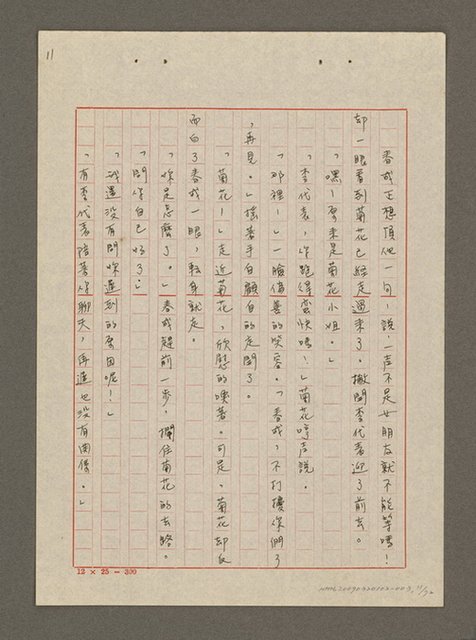 11
春成正想頂他一句,說,一声不是女朋友就不能等嗎!
却一眼看到菊花已經走過來了。撇開李代表迎了前去。
「嘿!原來是菊花小姐。」
「李代表,你跑得蛮快嗎!」菊花哼声說。
「那裡!」一臉偽善的笑容。「春成,不打擾你們了
,再見。」搖著手自顧自的走開了。
「菊花!」走近菊花,欣慰的喚着。可是,菊花却反
而白了春成一眼,転身就走。
「妳是怎麼了。」春成趕前一步,攔住菊花的去路。
「問你自己好了!」
「我還沒有問妳遲到的原因呢!」
「有李代表陪著你聊天,再遲也沒有関係。」
12 × 25 = 300
NMTL20090320102-003, 11/32